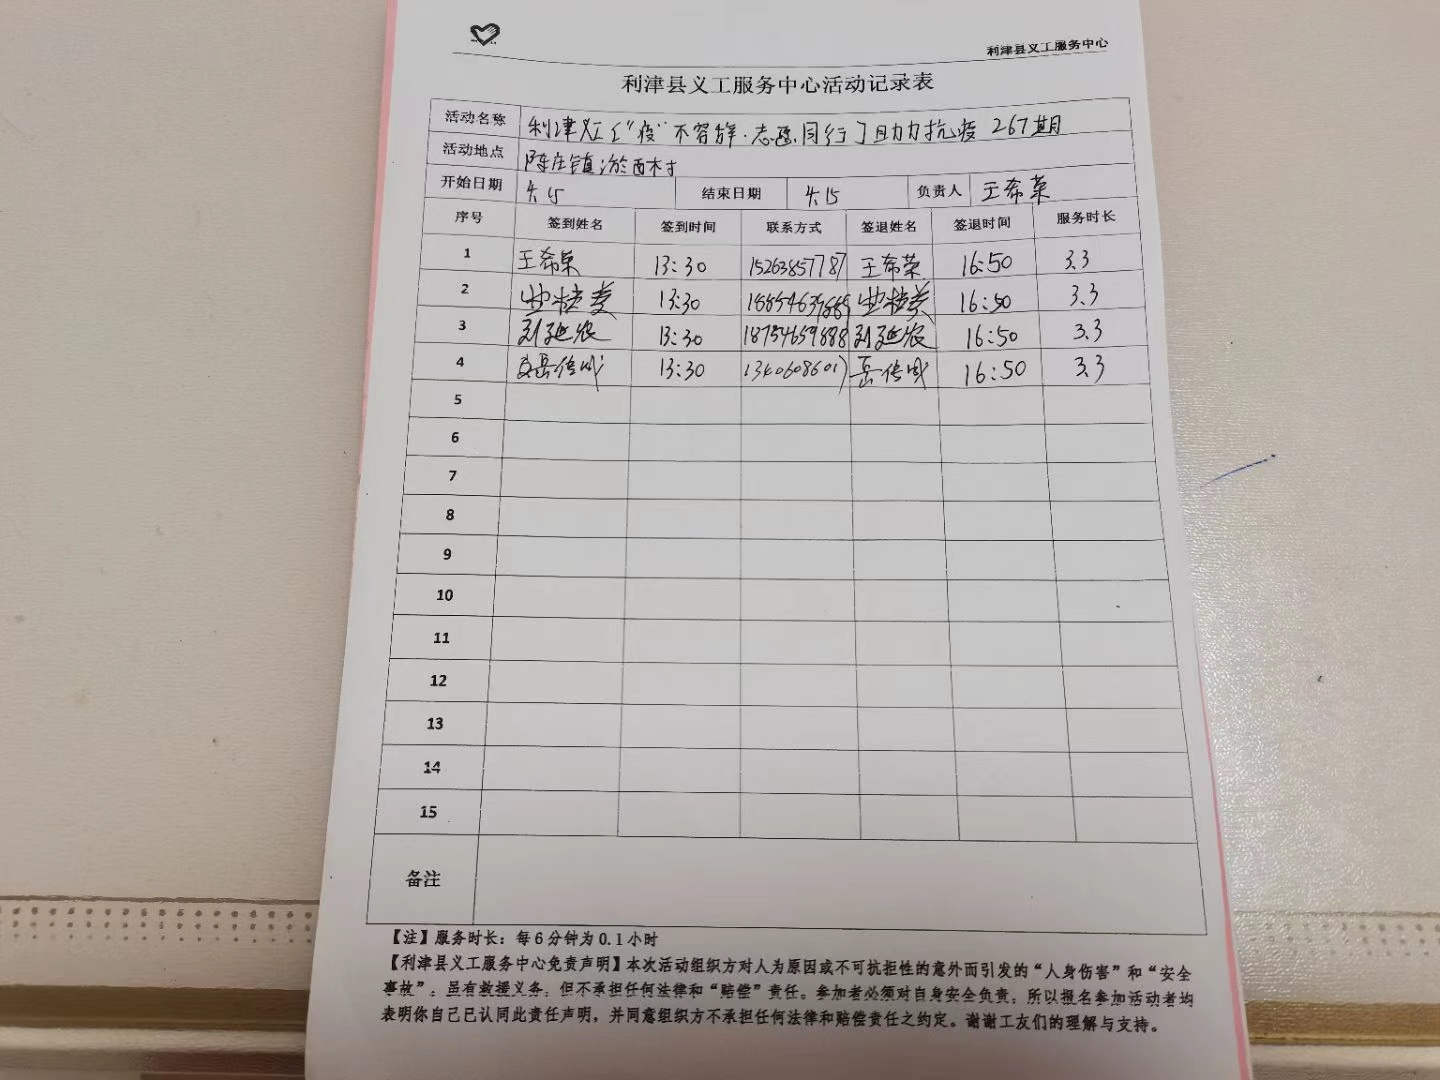 利津县义工服务中心
利津县义工服务中心活动记录表
活动名称 利津义工“疫”不容辞·志愿同行 助力抗疫 267期
活动地点 陈庄镇 西村
开始日期 4.15 结束日期 4.15 负责人 王希荣
序号 签到姓名 签到时间 联系方式 签退姓名 签退时间 服务时长
1 王希荣 13:30 15263857787 王希荣 16:50 3.3
2 13:30 16:50 3.3
3 刘延农 13:30 18754659888 刘延农 16:50 3.3
4 岳传成 13:30 13406086017 岳传成 16:50 3.3
5
6
7
8
9
10
11
12
13
14
15
备注
【注】服务时长：每6分钟为0.1小时
【利津县义工服务中心免责声明】本次活动组织方对人为原因或不可抗拒性的意外而引发的“人身伤害”和“安全
事故”，虽有救援义务，但不承担任何法律和“赔偿”责任。参加者必须对自身安全负责，所以报名参加活动者均
表明你自己已认同此责任声明，并同意组织方不承担任何法律和赔偿责任之约定。谢谢工友们的理解与支持。